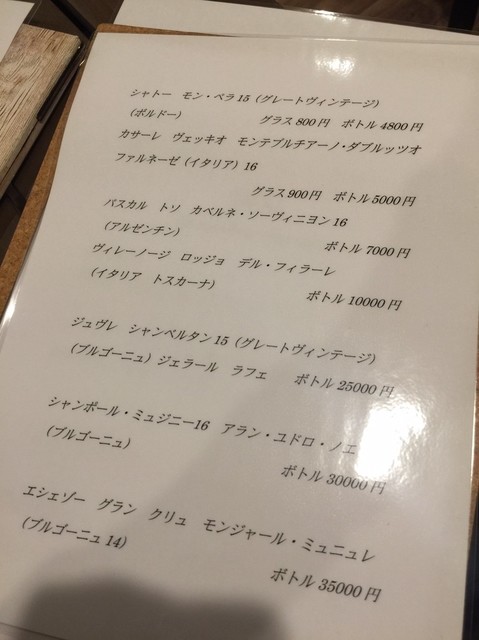 シャトー　モン・ペラ15（グレートヴィンテージ）
（ボルドー）　グラス800円　ボトル4800円
カサーレ　ヴェッキオ　モンテプルチアーノ・ダブルッツオ
ファルネーゼ（イタリア）16
グラス900円　ボトル5000円
パスカル　トソ　カベルネ・ソーヴィニヨン16
（アルゼンチン）　ボトル7000円
ヴィレーノージ　ロッジョ　デル・フィラーレ
（イタリア　トスカーナ）　ボトル10000円
ジュヴレ　シャンベルタン15（グレートヴィンテージ）
（ブルゴーニュ）ジェラール　ラフェ　ボトル25000円
シャンボール・ミュジニー16　アラン・ユドロ・ノエ
（ブルゴーニュ）　ボトル30000円
エシェゾー　グラン　クリュ　モンジャール・ミュニュレ
（ブルゴーニュ14）　ボトル35000円